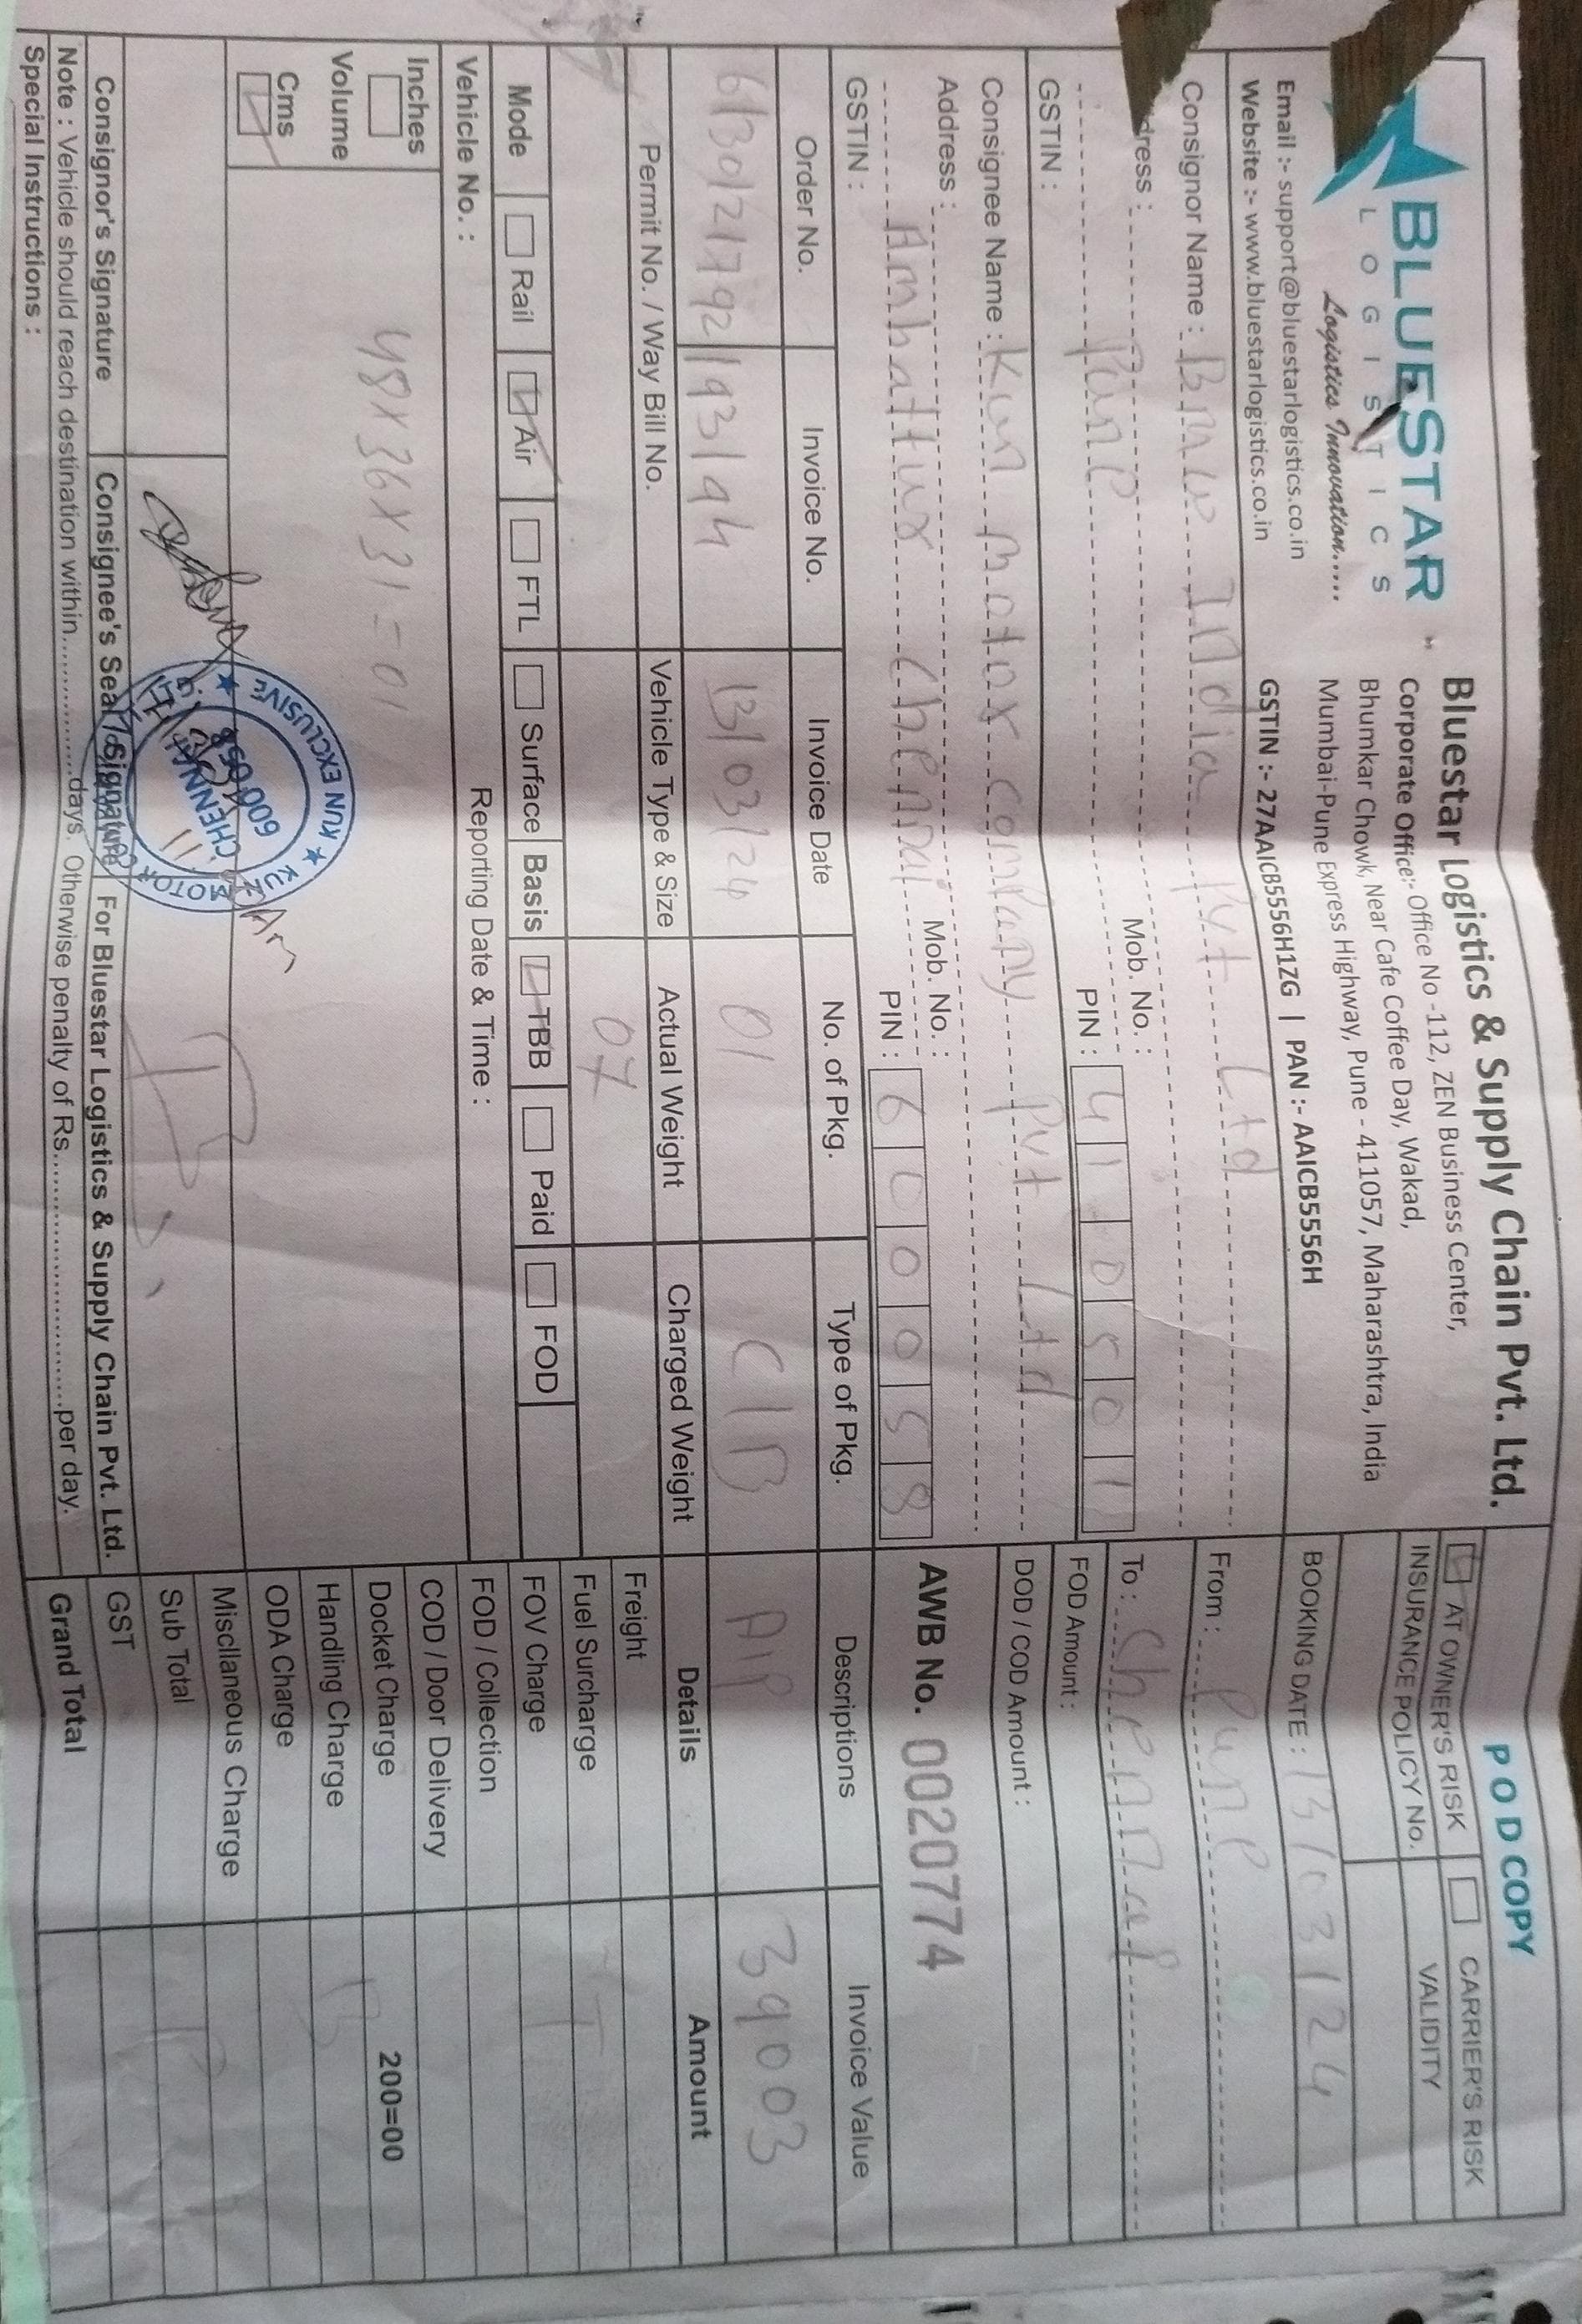 BLUESTAR
LOGISTICS
Logistics Innovation.....
Email :- support@bluestarlogistics.co.in
Website :- www.bluestarlogistics.co.in
Bluestar Logistics & Supply Chain Pvt. Ltd.
Corporate Office:- Office No -112, ZEN Business Center,
Bhumkar Chowk, Near Cafe Coffee Day, Wakad,
Mumbai-Pune Express Highway, Pune - 411057, Maharashtra, India
GSTIN :- 27AAICB5556H1ZG | PAN :- AAICB5556H
POD COPY
AT OWNER'S RISK CARRIER'S RISK
INSURANCE POLICY No. VALIDITY
BOOKING DATE : 13/03/24
From : Pune
To : Chennai
FOD Amount :
DOD / COD Amount :
AWB No. 0020774
Consignor Name : Bmw India Pvt Ltd
dress :
Mob. No. :
Pune
PIN : 410501
GSTIN :
Consignee Name : Kun motor company Pvt Ltd
Address :
Mob. No. :
Ambattur Chennai
PIN : 600058
GSTIN :
Order No. Invoice No. Invoice Date No. of Pkg. Type of Pkg. Descriptions Invoice Value
6/30/21792/93/94 13/03/24 01 C/B A/P 39003
Permit No. / Way Bill No. Vehicle Type & Size Actual Weight Charged Weight Details Amount
07
Mode Rail Air FTL Surface Basis TBB Paid FOD
Vehicle No. : Reporting Date & Time :
Inches
Volume
Cms
48X36X31=01
Freight
Fuel Surcharge T
FOV Charge
FOD / Collection
COD / Door Delivery
Docket Charge 200=00
Handling Charge B
ODA Charge
Miscllaneous Charge
Sub Total
GST
Grand Total
KUN EXCLUSIVE ★ KUN MOTOR CO
CHENNAI
600 058
Consignor's Signature Consignee's Seal / Signature For Bluestar Logistics & Supply Chain Pvt. Ltd.
Note : Vehicle should reach destination within.................days. Otherwise penalty of Rs...............................per day.
Special Instructions :